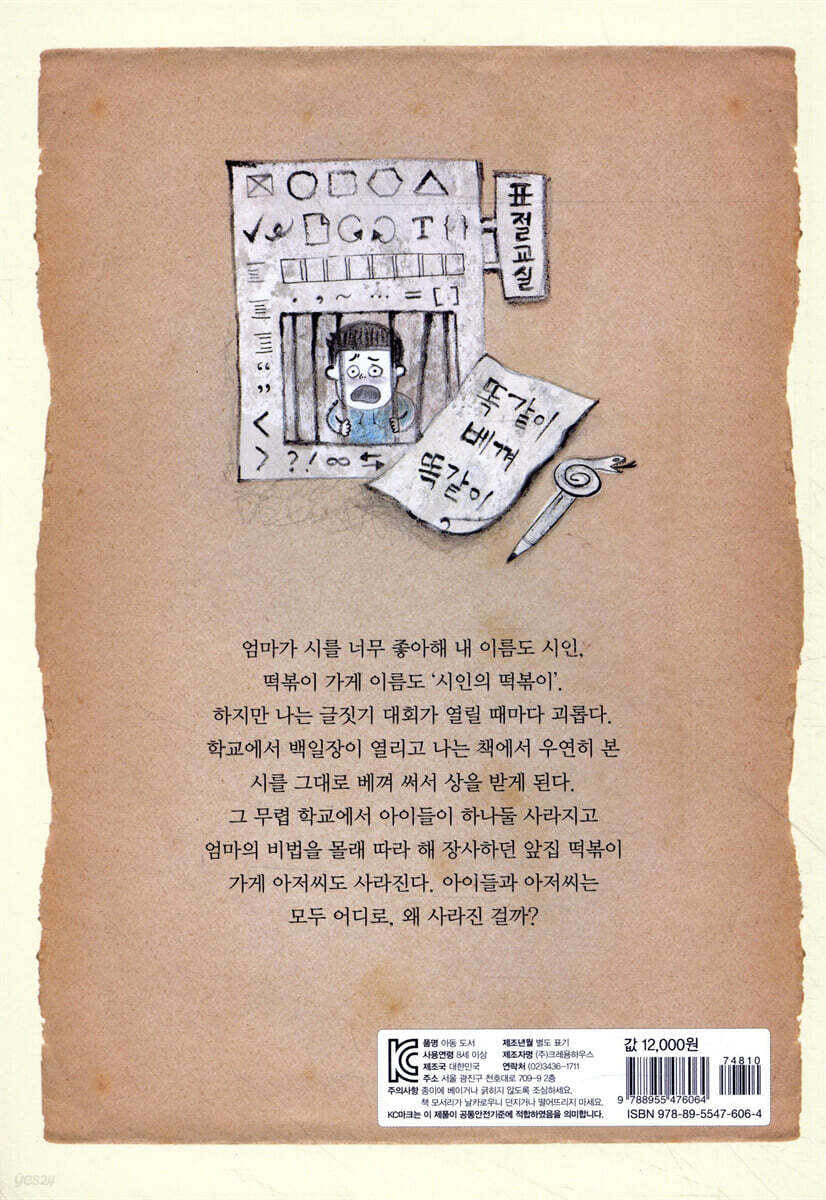 표절교실
T { }
. , ~ ... = [ ]
“
”
<
> ? ! ∞
똑같이
베껴
똑같이
엄마가 시를 너무 좋아해 내 이름도 시인,
떡볶이 가게 이름도 ‘시인의 떡볶이’.
하지만 나는 글짓기 대회가 열릴 때마다 괴롭다.
학교에서 백일장이 열리고 나는 책에서 우연히 본
시를 그대로 베껴 써서 상을 받게 된다.
그 무렵 학교에서 아이들이 하나둘 사라지고
엄마의 비법을 몰래 따라 해 장사하던 앞집 떡볶이
가게 아저씨도 사라진다. 아이들과 아저씨는
모두 어디로, 왜 사라진 걸까?
KC
품명 아동 도서 제조년월 별도 표기
사용연령 8세 이상 제조자명 (주)크레용하우스
제조국 대한민국 연락처 (02)3436-1711
주소 서울 광진구 천호대로 709-9 2층
주의사항 종이에 베이거나 긁히지 않도록 조심하세요.
책 모서리가 날카로우니 던지거나 떨어뜨리지 마세요.
KC마크는 이 제품이 공통안전기준에 적합하였음을 의미합니다.
값 12,000원
74810
9 788955 476064
ISBN 978-89-5547-606-4
yes24